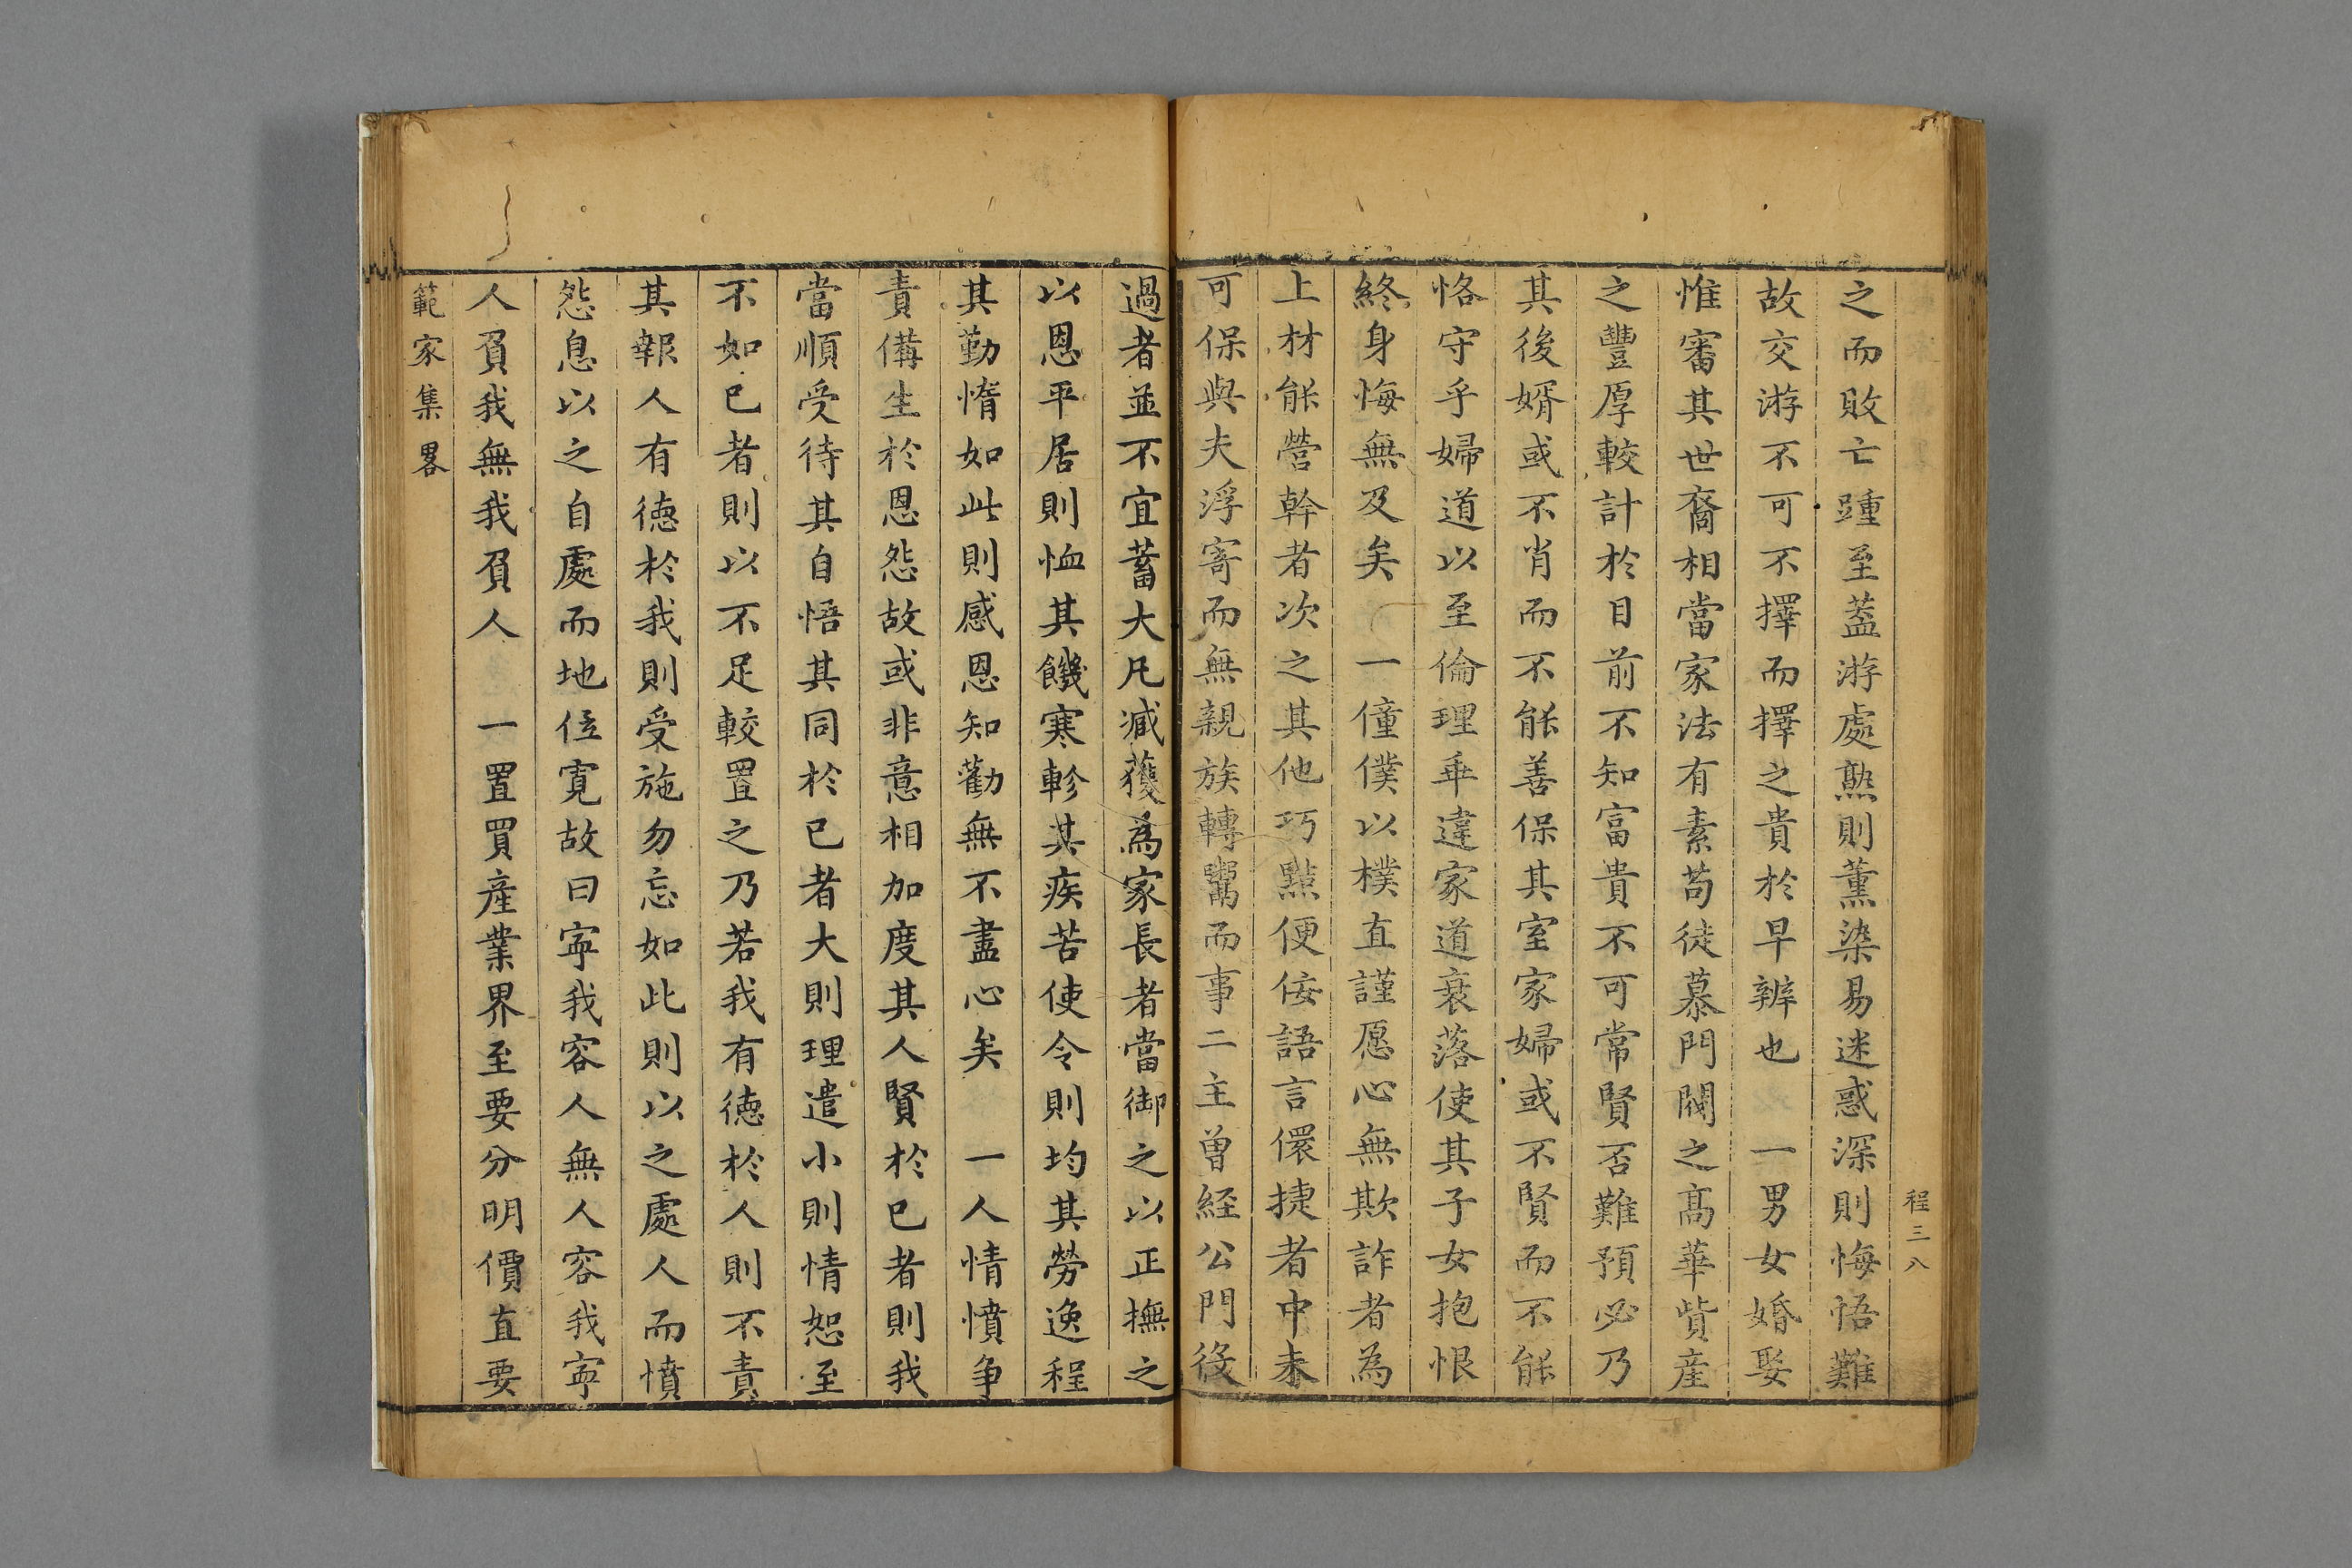 程三八
之而敗亡踵至蓋游處熟則薰染易迷惑深則悔悟難
故交游不可不擇而擇之貴於早辨也　一男女婚娶
惟審其世裔相當家法有素苟徒慕門閥之髙華貲産
之豐厚較計於目前不知富貴不可常賢否難預必乃
其後婿或不肖而不能善保其室家婦或不賢而不能
恪守乎婦道以至倫理乖違家道衰落使其子女抱恨
終身悔無及矣　一僮僕以樸直謹愿心無欺詐者為
上材能營幹者次之其他巧黠便佞語言儇捷者中未
可保與夫浮寄而無親族轉鬻而事二主曾経公門後
過者並不宜蓄大凡減獲為家長者當御之以正撫之
以恩平居則恤其饑寒軫其疾苦使令則均其勞逸程
其勤惰如此則感恩知勸無不盡心矣　一人情憤争
責備生於恩怨故或非意相加度其人賢於已者則我
當順受待其自悟其同於已者大則理遣小則情恕至
不如已者則以不足較置之乃若我有德於人則不責
其報人有徳於我則受施勿忘如此則以之處人而憤
怨息以之自處而地位寛故曰寜我容人無人容我寜
人負我無我負人　一置買産業界至要分明價直要
範家集畧